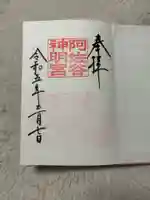 奉拝
阿佐谷
神明宮
令和五年五月十日